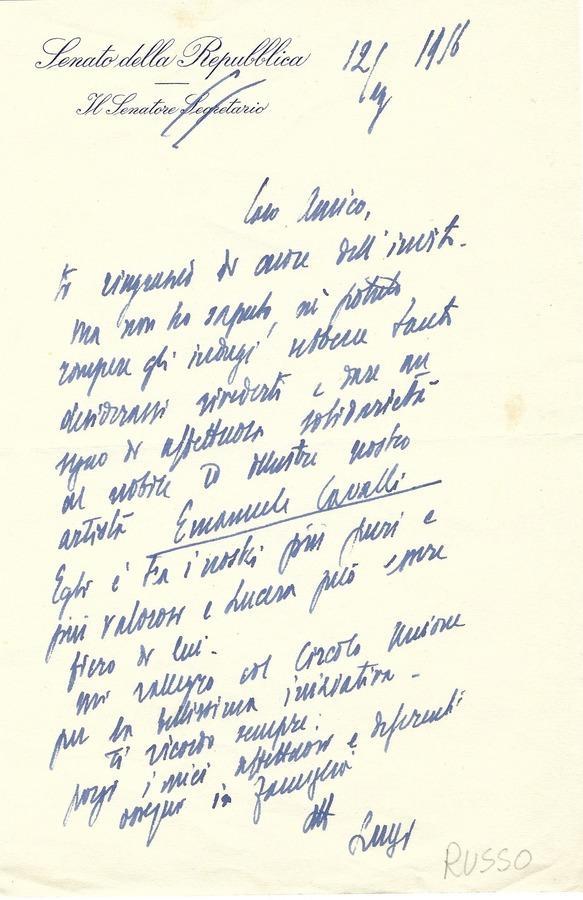 Senato della Repubblica
Il Senatore Segretario
12/ 1956
Caro Amico,
ti ringrazio di cuore dell'invito.
ma non ho saputo, né potuto
rompere gli indugi sebbene tanto
desiderassi rivederti e dare un
segno di affettuosa solidarietà
al nobile ed illustre nostro
artista Emanuele Cavalli.
Egli è fra i nostri più puri e
più valorosi e Lucera può essere
fiera di lui.
Mi rallegro col Circolo Unione
per la bellissima iniziativa.
Ti ricordo sempre.
porgi i miei affettuosi e deferenti
ossequi in famiglia
Luigi
RUSSO